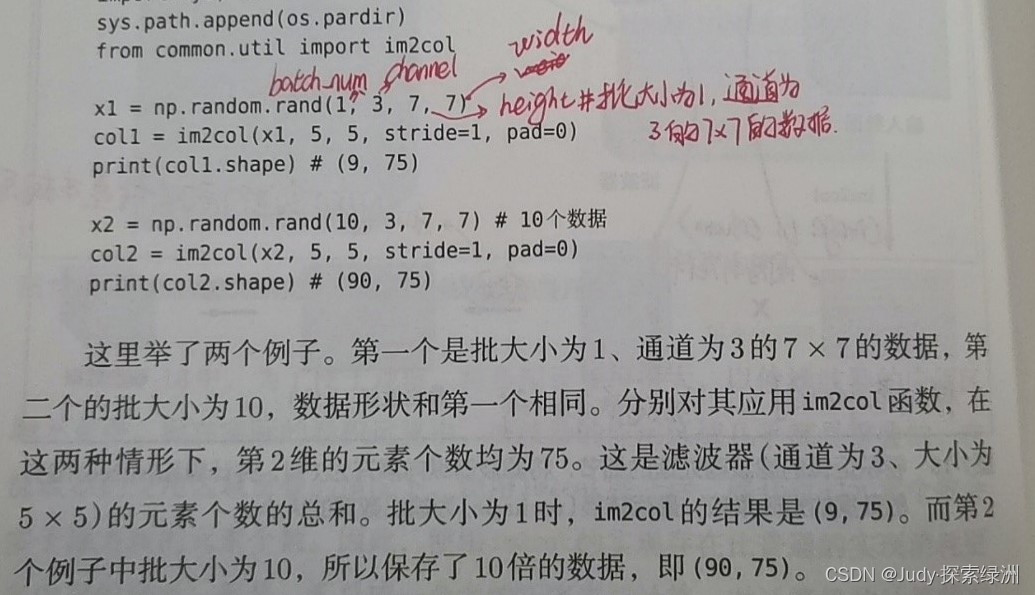 sys.path.append(os.pardir)
from common.util import im2col
width
batch_num channel
x1 = np.random.rand(1, 3, 7, 7) height #批大小为1,通道为
3的7×7的数据.
col1 = im2col(x1, 5, 5, stride=1, pad=0)
print(col1.shape) # (9, 75)
x2 = np.random.rand(10, 3, 7, 7) # 10个数据
col2 = im2col(x2, 5, 5, stride=1, pad=0)
print(col2.shape) # (90, 75)
这里举了两个例子。第一个是批大小为1、通道为3的7 × 7的数据,第
二个的批大小为10,数据形状和第一个相同。分别对其应用im2col函数,在
这两种情形下,第2维的元素个数均为75。这是滤波器(通道为3、大小为
5 × 5)的元素个数的总和。批大小为1时,im2col的结果是(9, 75)。而第2
个例子中批大小为10,所以保存了10倍的数据,即(90, 75)。
CSDN @Judy·探索绿洲